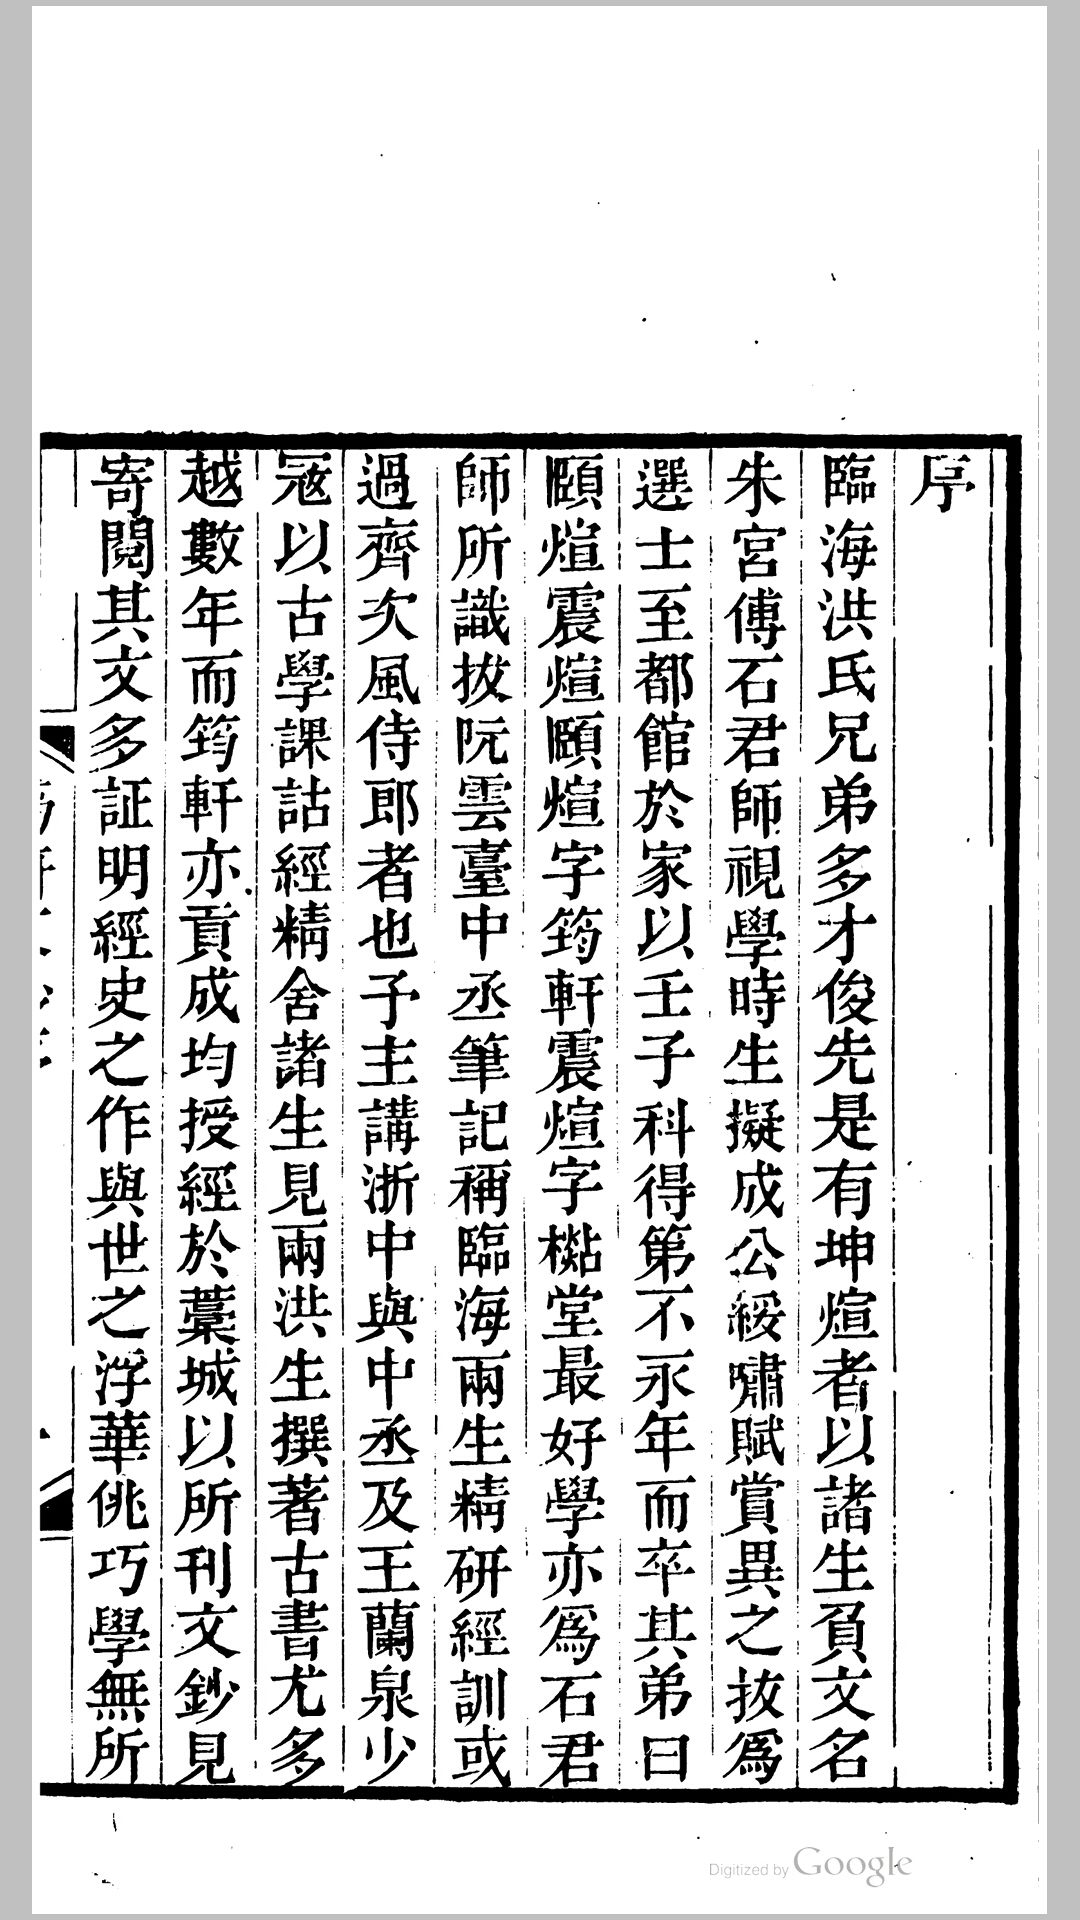 序
臨海洪氏兄弟多才俊先是有坤煊者以諸生負文名
朱宮傅石君師視學時生擬成公綏嘯賦賞異之拔爲
選士至都館於家以壬子科得第不永年而卒其弟曰
頤煊震煊頤煊字筠軒震煊字檆堂最好學亦爲石君
師所識拔阮雲臺中丞筆記稱臨海兩生精研經訓或
過齊次風侍郎者也予主講浙中與中丞及王蘭泉少
冦以古學課詁經精舍諸生見兩洪生撰著古書尤多
越數年而筠軒亦貢成均授經於藁城以所刊文鈔見
寄閱其文多証明經史之作與世之浮華佻巧學無所
Digitized by Google